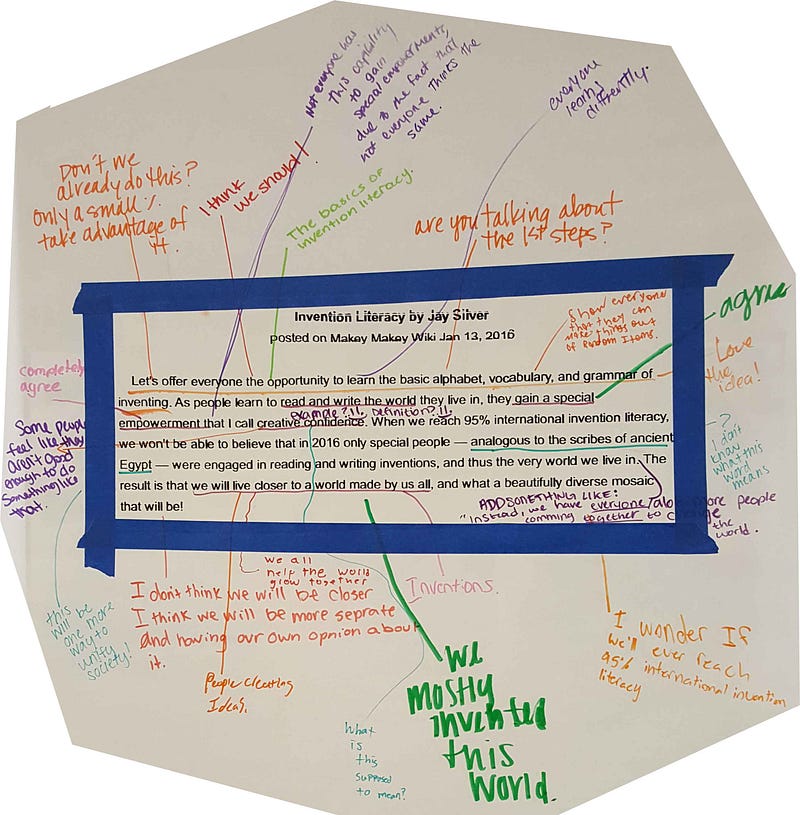 Not everyone has
this capibility
to gain
special empowerments,
due to the fact that
not everyone thinks the
same.
everyone
learns
differently.
Don't we
already do this?
only a small %
take advantage of
it.
I think
we should!
The basics of
invention literacy.
are you talking about
the 1st steps?
Invention Literacy by Jay Silver
posted on Makey Makey Wiki Jan 13, 2016
Show everyone
that they can
make things out
of Random Items.
agree
Love
the idea!
completely
agree
Let's offer everyone the opportunity to learn the basic alphabet, vocabulary, and grammar of
inventing. As people learn to read and write the world they live in, they gain a special
example?!!, Definition?!!
empowerment that I call creative confidence. When we reach 95% international invention literacy,
we won't be able to believe that in 2016 only special people — analogous to the scribes of ancient
Egypt — were engaged in reading and writing inventions, and thus the very world we live in. The
result is that we will live closer to a world made by us all, and what a beautifully diverse mosaic
that will be!
ADD SOMETHING LIKE:
"instead, we have everyone/alot more people
comming together to change
the world.
Some people
feel like they
aren't good
enough to do
something like
that.
?
I don't
know
what this
word
means
we all
help the world
glow together
I don't think we will be closer
I think we will be more seprate
and having our own opnion about
it.
Inventions.
this
will be
one more
way to
unify
society!
People creating
Ideas.
we
mostly
invented
this
world.
I wonder If
we'll ever reach
95% international invention
literacy
What
is
this
supposed
to mean?